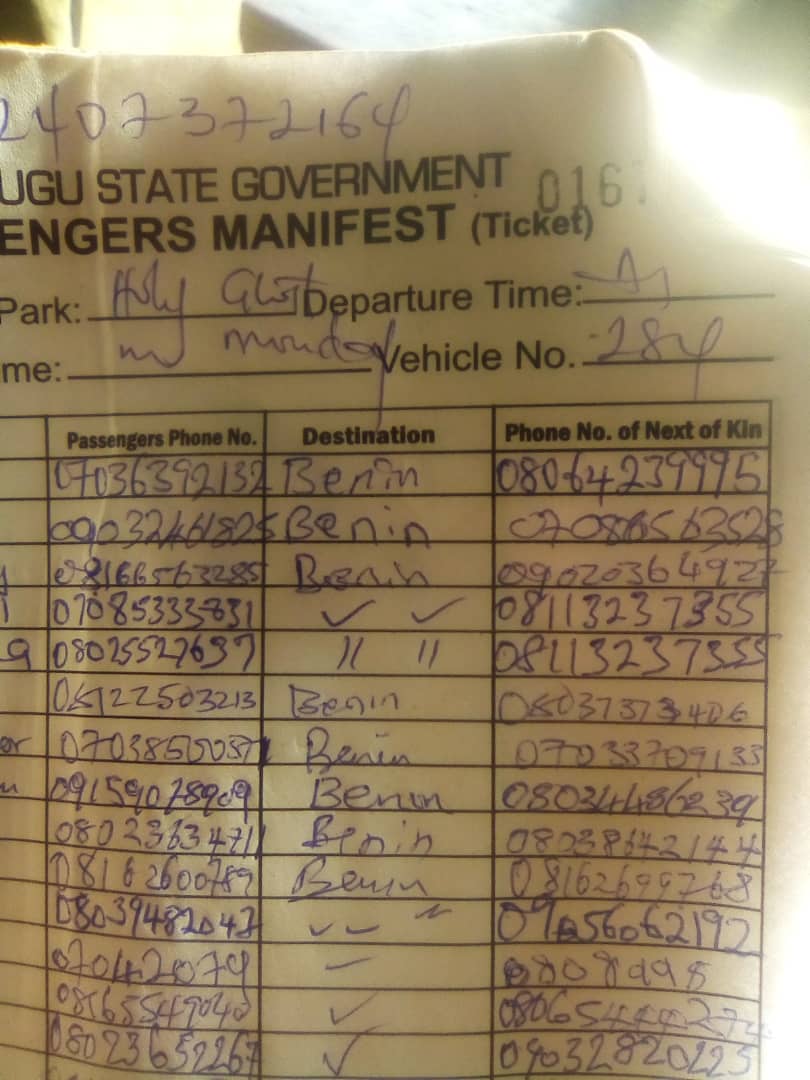 2407372164
UGU STATE GOVERNMENT 016
ENGERS MANIFEST (Ticket)
Park: Holy Ghost Departure Time:
me: monday Vehicle No. 284
Passengers Phone No. Destination Phone No. of Next of Kin
07036392132 Benin 08064239995
Benin
08166563285 Benin 09020364927
✓ ✓ 08113237355
08025527637 " " 08113237355
08122503213 Benin 08037373406
Benin 07033709133
09159078909 Benin 08034486239
08023634711 Benin 08038642144
08162600789 Benin 08162699768
08039482047 ✓ ✓ "
07042079 0808998
✓
08023652267 ✓ 09032820225